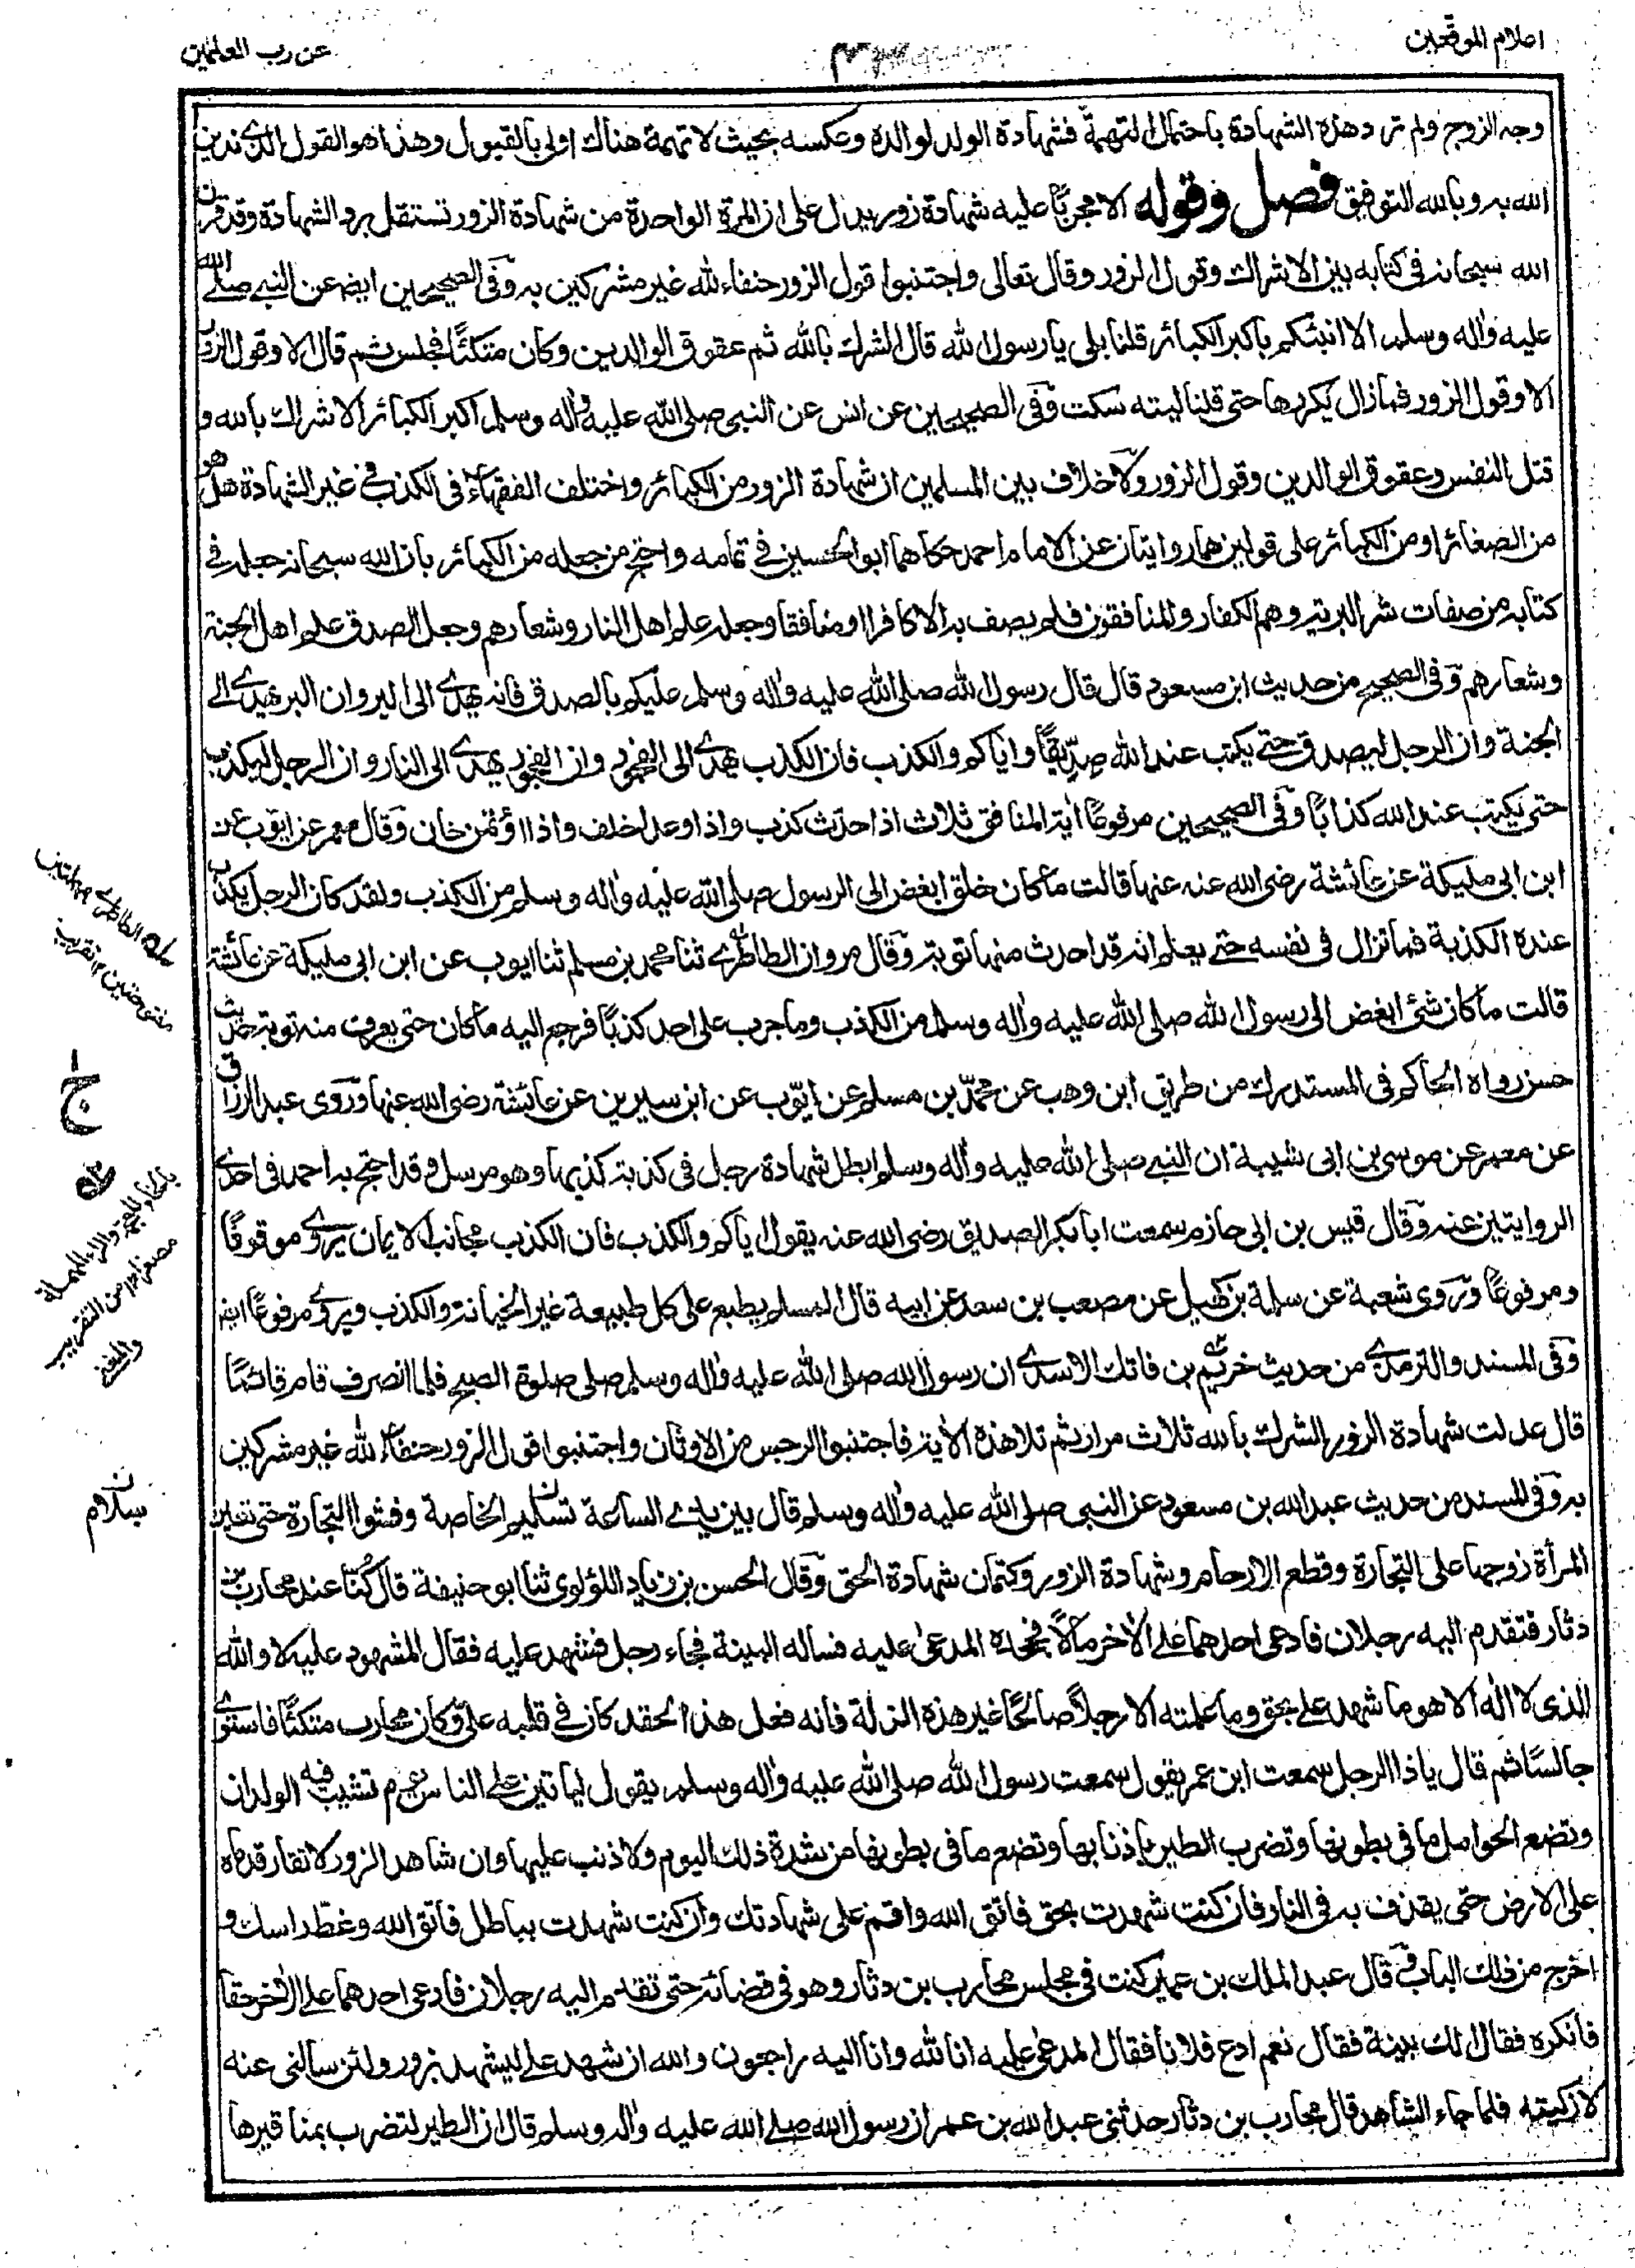 اعلام الموقعين
عن رب العلمين
وجه الزوج ولم ترد هذه الشهادة باحتمال التهمة فشهادة الولد لوالده وعكسه بحيث لا تهمة هناك اولى بالقبول وهذا هو القول الذي ندين
الله به وبالله التوفيق فصل وقوله الا مجربًا عليه شهادة زور يدل على ان المرة الواحدة من شهادة الزور تستقل برد الشهادة وقد قرن
الله سبحانه في كتابه بين الاشراك وقول الزور وقال تعالى واجتنبوا قول الزور حنفاء لله غير مشركين به وفى الصحيحين ايضه عن النبي صلى الله
عليه واله وسلم الا انبئكم باكبر الكبائر قلنا بلى يا رسول الله قال الشرك بالله ثم عقوق الوالدين وكان متكئًا فجلس ثم قال الا وقول الزور
الا وقول الزور فما زال يكررها حتى قلنا ليته سكت وفى الصحيحين عن انس عن النبي صلى الله عليه واله وسلم اكبر الكبائر الاشراك بالله و
قتل النفس وعقوق الوالدين وقول الزور ولا خلاف بين المسلمين ان شهادة الزور من الكبائر واختلف الفقهاء فى الكذب في غير الشهادة هل هو
من الصغائر او من الكبائر على قولين هما روايتان عن الامام احمد حكاهما ابو الحسين في تمامه واحتج من جعله من الكبائر بان الله سبحانه جعله في
كتابه من صفات شر البريه وهم الكفار والمنافقون فلم يصف به الا كافرا او منافقا وجعله علم اهل النار وشعارهم وجعل الصدق علم اهل الجنة
وشعارهم وفى الصحيح من حديث ابن مسعود قال قال رسول الله صلى الله عليه واله وسلم عليكم بالصدق فانه يهدي الى البر وان البر يهدي الى
الجنة وان الرجل ليصدق حتى يكتب عند الله صديقًا واياكم والكذب فان الكذب يهدي الى الفجور وان الفجور يهدي الى النار وان الرجل ليكذب
حتى يكتب عند الله كذابًا وفى الصحيحين مرفوعًا اية المنافق ثلاث اذا حدث كذب واذا وعد اخلف واذا اؤتمن خان وقال معمر عن ايوب عن
ابن ابى مليكة عن عائشة رضى الله عنه عنها قالت ما كان خلق ابغض الى الرسول صلى الله عليه واله وسلم من الكذب ولقد كان الرجل يكذب
عنده الكذبة فما تزال فى نفسه حتى يعلم انه قد احدث منها توبة وقال مروان الطاطري ثنا محمد بن مسلم ثنا ايوب عن ابن ابى مليكة عن عائشة
قالت ما كان شئ ابغض الى رسول الله صلى الله عليه واله وسلم من الكذب وما جرب على احد كذبًا فرجع اليه ما كان حتى يعرف منه توبة حديث
حسن رواه الحاكم فى المستدرك من طريق ابن وهب عن محمد بن مسلم عن ايوب عن ابن سيرين عن عائشة رضى الله عنها وروى عبد الرزاق
عن معمر عن موسى بن ابى شيبة ان النبي صلى الله عليه واله وسلم ابطل شهادة رجل فى كذبة كذبها وهو مرسل وقد احتج به احمد فى احدى
الروايتين عنه وقال قيس بن ابى حازم سمعت ابا بكر الصديق رضى الله عنه يقول اياكم والكذب فان الكذب مجانب الايمان يروي موقوفًا
ومرفوعًا وروى شعبة عن سلمة بن كهيل عن مصعب بن سعد عن ابيه قال المسلم يطبع على كل طبيعة غير الخيانة والكذب ويروي مرفوعًا ايضه
وفى المسند والترمذي من حديث خريم بن فاتك الاسدي ان رسول الله صلى الله عليه واله وسلم صلى صلوة الصبح فلما انصرف قام قائمًا
قال عدلت شهادة الزور الشرك بالله ثلاث مرار ثم تلا هذه الأية فاجتنبوا الرجس من الاوثان واجتنبوا قول الزور حنفاء لله غير مشركين
به وفى المسند من حديث عبد الله بن مسعود عن النبي صلى الله عليه واله وسلم قال بين يدي الساعة تسليم الخاصة وفشوا التجارة حتى تعين
المرأة زوجها على التجارة وقطع الارحام وشهادة الزور وكتمان شهادة الحق وقال الحسن بن زياد اللؤلوى ثنا ابو حنيفة قال كنا عند محارب بن
دثار فتقدم اليه رجلان فادعى احدهما على الأخر مالاً فجحده المدعى عليه فساله البينة فجاء رجل فشهد عليه فقال المشهود عليه لا والله
الذى لا اله الا هو ما شهد علي بحق وما علمته الا رجلاً صالحًا غير هذه الزلة فانه فعل هذا لحقد كان في قلبه علي وكان محارب متكئًا فاستوى
جالسًا ثم قال يا ذا الرجل سمعت ابن عمر يقول سمعت رسول الله صلى الله عليه واله وسلم يقول لياتين على الناس يوم تشيب فيه الولدان
وتضع الحوامل ما فى بطونها وتضرب الطير باذنابها وتضع ما فى بطونها من شدة ذلك اليوم ولا ذنب عليها وان شاهد الزور لا تقار قدماه
على الارض حتى يقذف به فى النار فان كنت شهدت بحق فاتق الله واقم على شهادتك وان كنت شهدت بباطل فاتق الله وغط راسك و
اخرج من ذلك الباب وقال عبد الملك بن عمير كنت فى مجلس محارب بن دثار وهو فى قضائه حتى تقدم اليه رجلان فادعى احدهما على الأخر حقا
فانكره فقال الك بينة فقال نعم ادع فلانا فقال المدعى عليه انا لله وانا اليه راجعون والله ان شهد علي ليشهد بزور ولئن سالنى عنه
لازكينه فلما جاء الشاهد قال محارب بن دثار حدثنى عبد الله بن عمر ان رسول الله صلى الله عليه واله وسلم قال ان الطير لتضرب بمناقيرها
مله الطاطري بمهملتين
مفتوحتين ١٢ تقريب
ج
بالخاء المعجمة والراء المهملة
مصغرا ١٢ من التقريب
والمغنى
ن
سلام